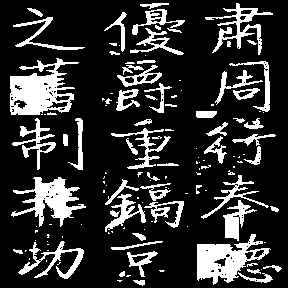 肅周行奉德
優爵重鎬京
之舊制非功